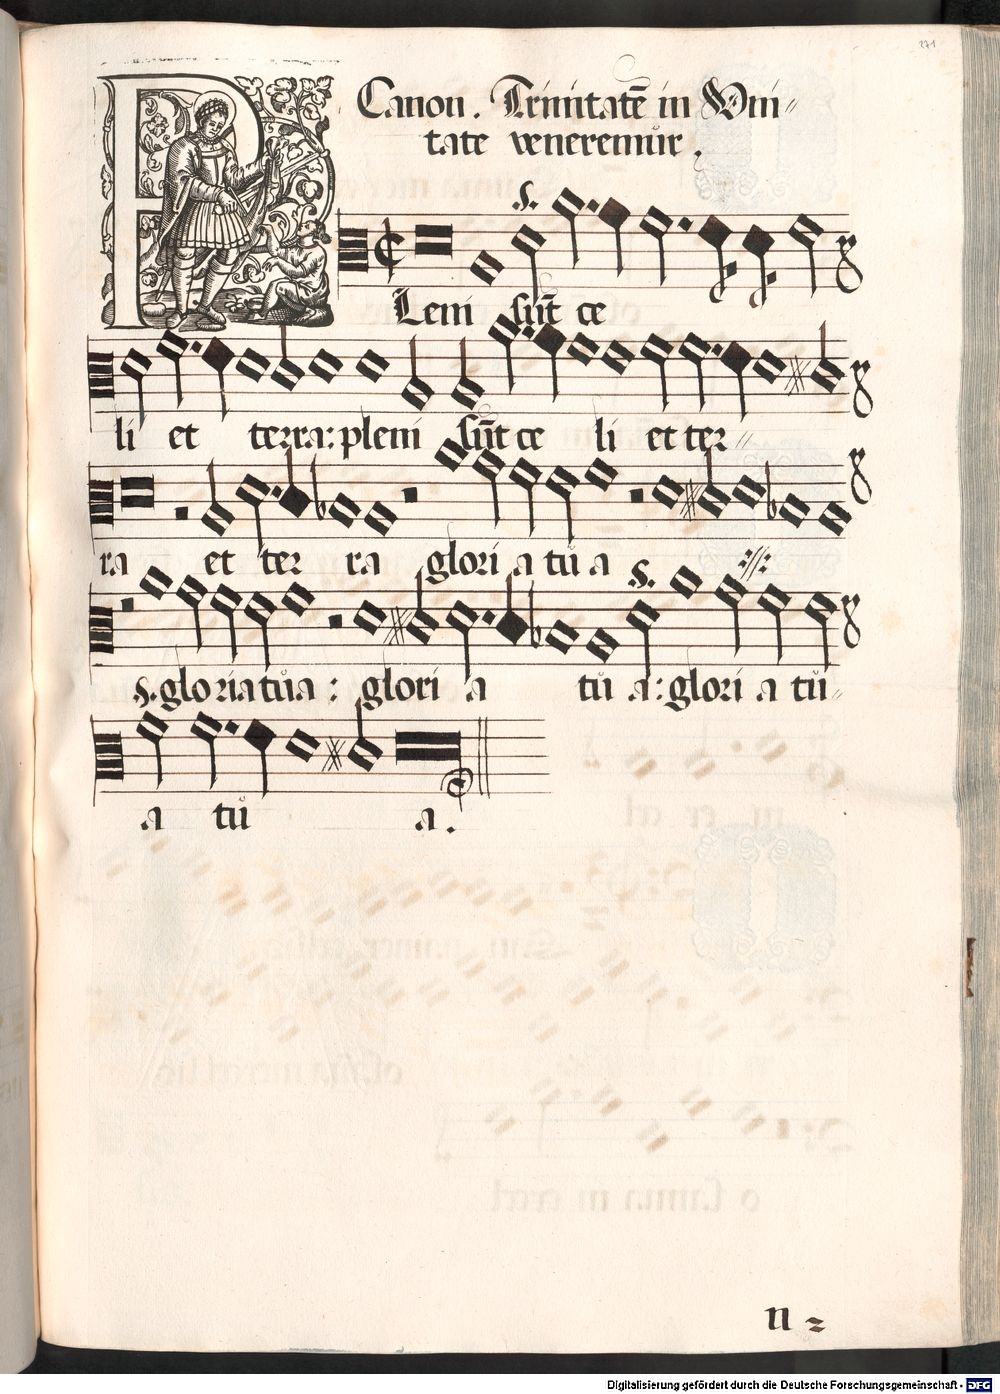 271
Canon. Trinitatē in Vni⸗
tate veneremur.
.S.
PLeni sūt ce
li et terra: pleni sūt ce li et ter⸗
ra et ter ra glori a tů a :⫽:
.S.
S. gloria tůa: glori a tů a: glori a tů⸗
a tů a.
n 2
Digitalisierung gefördert durch die Deutsche Forschungsgemeinschaft - DFG